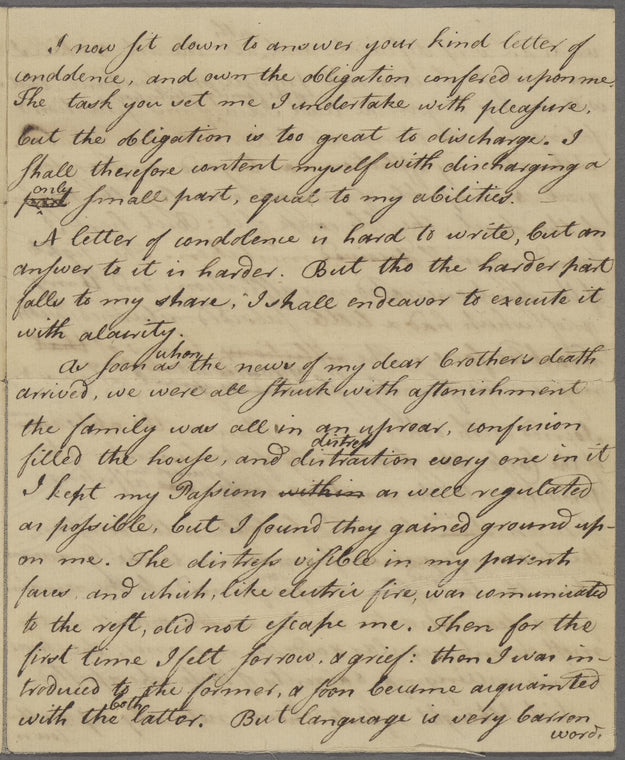 I now sit down to answer your kind letter of
condolence, and own the obligation confered upon me.
The task you set me I undertake with pleasure,
but the obligation is too great to discharge. I
shall therefore content myself with discharging a
only
small part, equal to my abilities.
A letter of condolence is hard to write, but an
answer to it is harder. But tho the harder part
falls to my share, I shall endeavor to execute it
with alacrity.
when
As soon as the news of my dear brother's death
arrived, we were all struck with astonishment
the family was all in an uproar, confusion
distress
filled the house, and distraction every one in it
I kept my Passions within as well regulated
as possible, but I found they gained ground up-
on me. The distress visible in my parent
faces, and which, like electric fire, was comunicated
to the rest, did not escape me. Then for the
first time I felt sorrow, & grief: then I was in-
troduced to the former, & soon became acquainted
both
with the latter. But language is very barren
word,